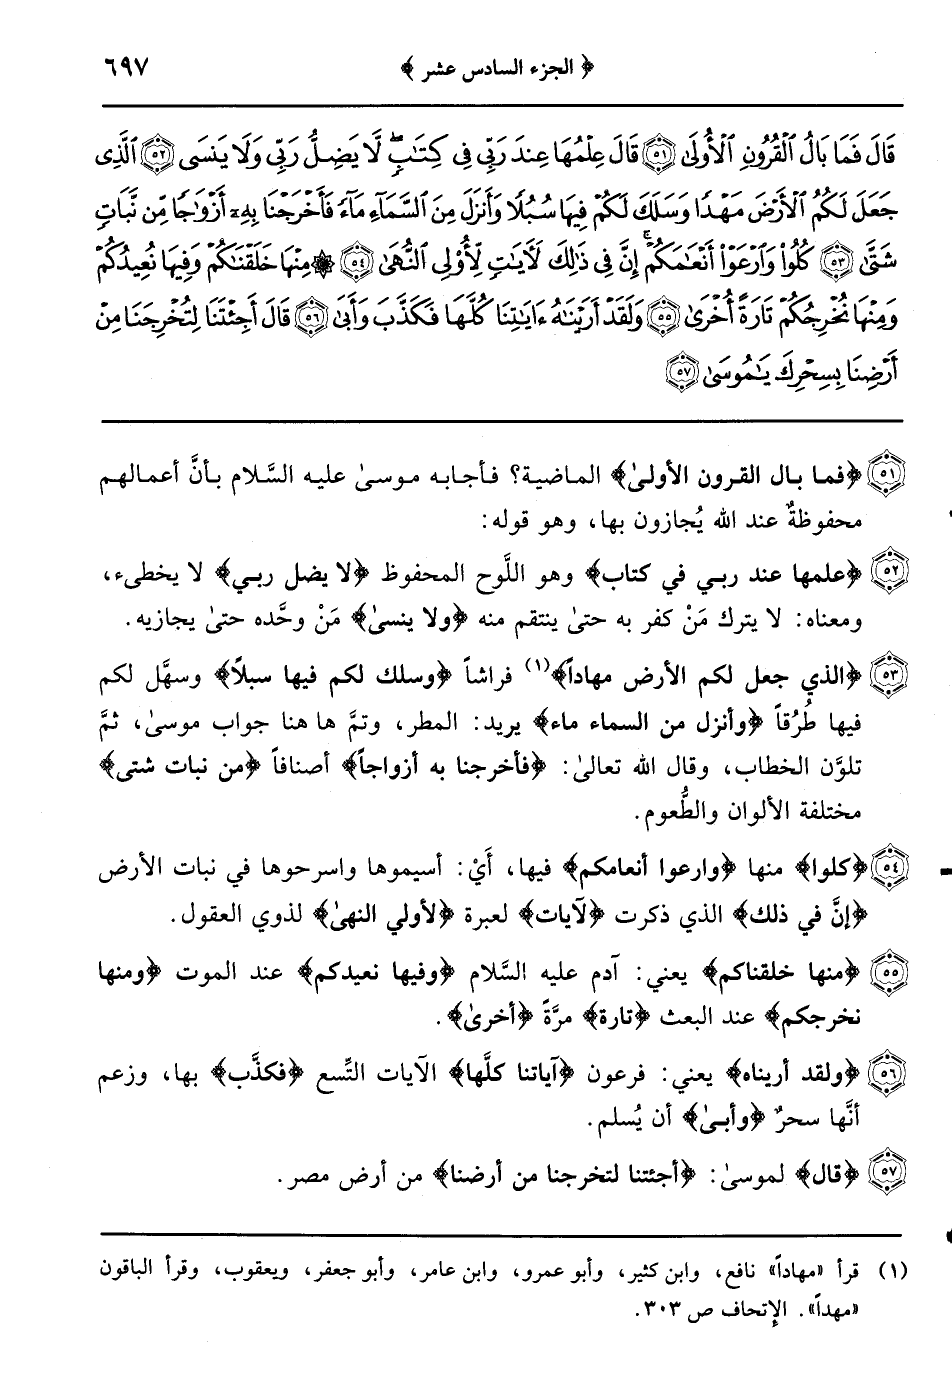 ﴿ الجزء السادس عشر ﴾ ٦٩٧
قَالَ فَمَا بَالُ ٱلْقُرُونِ ٱلْأُولَىٰ ﴿٥١﴾ قَالَ عِلْمُهَا عِندَ رَبِّى فِى كِتَـٰبٍۖ لَّا يَضِلُّ رَبِّى وَلَا يَنسَى ﴿٥٢﴾ ٱلَّذِى
جَعَلَ لَكُمُ ٱلْأَرْضَ مَهْدًا وَسَلَكَ لَكُمْ فِيهَا سُبُلًا وَأَنزَلَ مِنَ ٱلسَّمَآءِ مَآءً فَأَخْرَجْنَا بِهِۦٓ أَزْوَٰجًا مِّن نَّبَاتٍ
شَتَّىٰ ﴿٥٣﴾ كُلُوا۟ وَٱرْعَوْا۟ أَنْعَـٰمَكُمْۗ إِنَّ فِى ذَٰلِكَ لَـَٔايَـٰتٍ لِّأُو۟لِى ٱلنُّهَىٰ ﴿٥٤﴾ ۞ مِنْهَا خَلَقْنَـٰكُمْ وَفِيهَا نُعِيدُكُمْ
وَمِنْهَا نُخْرِجُكُمْ تَارَةً أُخْرَىٰ ﴿٥٥﴾ وَلَقَدْ أَرَيْنَـٰهُ ءَايَـٰتِنَا كُلَّهَا فَكَذَّبَ وَأَبَىٰ ﴿٥٦﴾ قَالَ أَجِئْتَنَا لِتُخْرِجَنَا مِنْ
أَرْضِنَا بِسِحْرِكَ يَـٰمُوسَىٰ ﴿٥٧﴾
﴿٥١﴾ ﴿فما بال القرون الأولىٰ﴾ الماضية؟ فأجابه موسىٰ عليه السَّلام بأنَّ أعمالهم
محفوظةٌ عند الله يُجازون بها، وهو قوله:
﴿٥٢﴾ ﴿علمها عند ربي في كتاب﴾ وهو اللَّوح المحفوظ ﴿لا يضل ربي﴾ لا يخطىء،
ومعناه: لا يترك مَنْ كفر به حتىٰ ينتقم منه ﴿ولا ينسىٰ﴾ مَنْ وحَّده حتىٰ يجازيه.
﴿٥٣﴾ ﴿الذي جعل لكم الأرض مهاداً﴾(١) فراشاً ﴿وسلك لكم فيها سبلاً﴾ وسهَّل لكم
فيها طُرُقاً ﴿وأنزل من السماء ماء﴾ يريد: المطر، وتمَّ ها هنا جواب موسىٰ، ثمَّ
تلوَّن الخطاب، وقال الله تعالىٰ: ﴿فأخرجنا به أزواجاً﴾ أصنافاً ﴿من نبات شتى﴾
مختلفة الألوان والطُّعوم.
﴿٥٤﴾ ﴿كلوا﴾ منها ﴿وارعوا أنعامكم﴾ فيها، أَيْ: أسيموها واسرحوها في نبات الأرض
﴿إنَّ في ذلك﴾ الذي ذكرت ﴿لآيات﴾ لعبرة ﴿لأولي النهىٰ﴾ لذوي العقول.
﴿٥٥﴾ ﴿منها خلقناكم﴾ يعني: آدم عليه السَّلام ﴿وفيها نعيدكم﴾ عند الموت ﴿ومنها
نخرجكم﴾ عند البعث ﴿تارة﴾ مرَّةً ﴿أخرىٰ﴾.
﴿٥٦﴾ ﴿ولقد أريناه﴾ يعني: فرعون ﴿آياتنا كلَّها﴾ الآيات التِّسع ﴿فكذَّب﴾ بها، وزعم
أنَّها سحرٌ ﴿وأبىٰ﴾ أن يُسلم.
﴿٥٧﴾ ﴿قال﴾ لموسىٰ: ﴿أجئتنا لتخرجنا من أرضنا﴾ من أرض مصر.
(١) قرأ «مهاداً» نافع، وابن كثير، وأبو عمرو، وابن عامر، وأبو جعفر، ويعقوب، وقرأ الباقون
«مهداً». الإتحاف ص ٣٠٣.